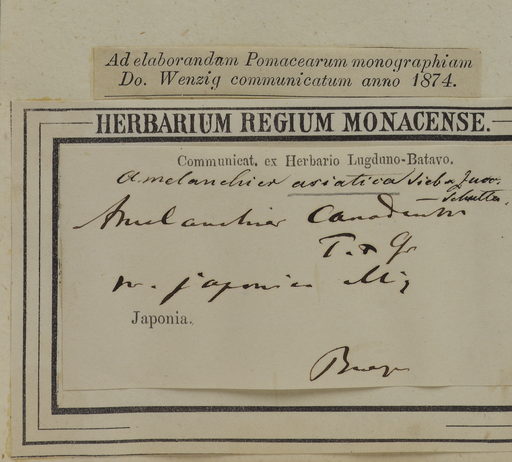 Ad elaborandam Pomacearum monographiam
Do. Wenzig communicatum anno 1874.
HERBARIUM REGIUM MONACENSE.
Communicat. ex Herbario Lugduno-Batavo.
Amelanchier asiatica Sieb &
Amelanchier Canadensis
T. & Gr
v. japonica Miq
Japonia.